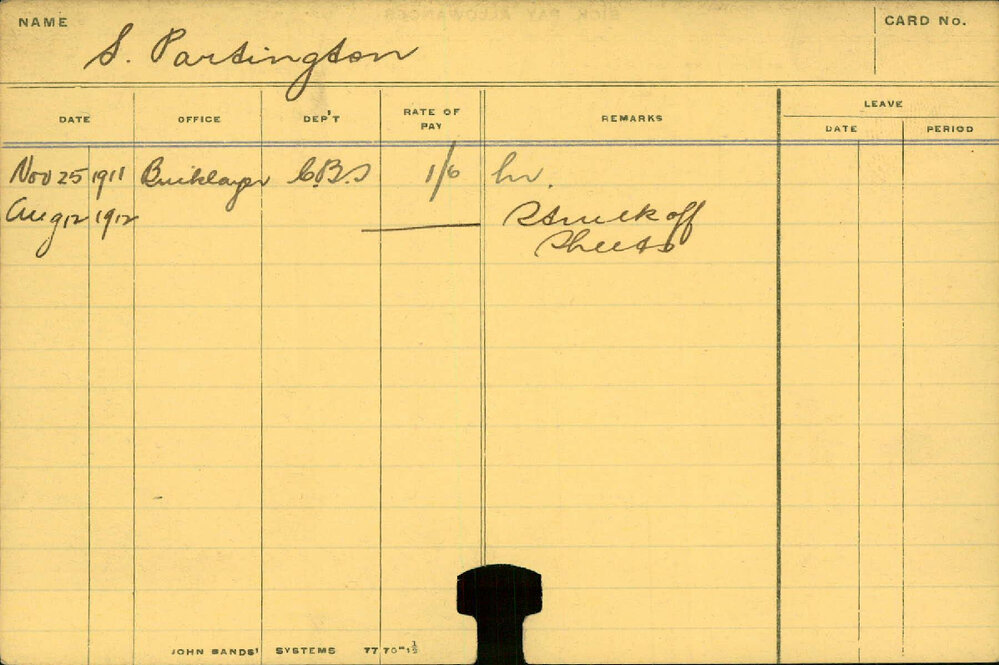 NAME S. Partington CARD No.
DATE OFFICE DEP'T RATE OF PAY REMARKS LEAVE
DATE PERIOD
Nov 25 1911 Bricklayer C.B.S 1/6 hr.
Aug 12 1912 Struck off
Sheets
JOHN SANDS' SYSTEMS 7770"-½